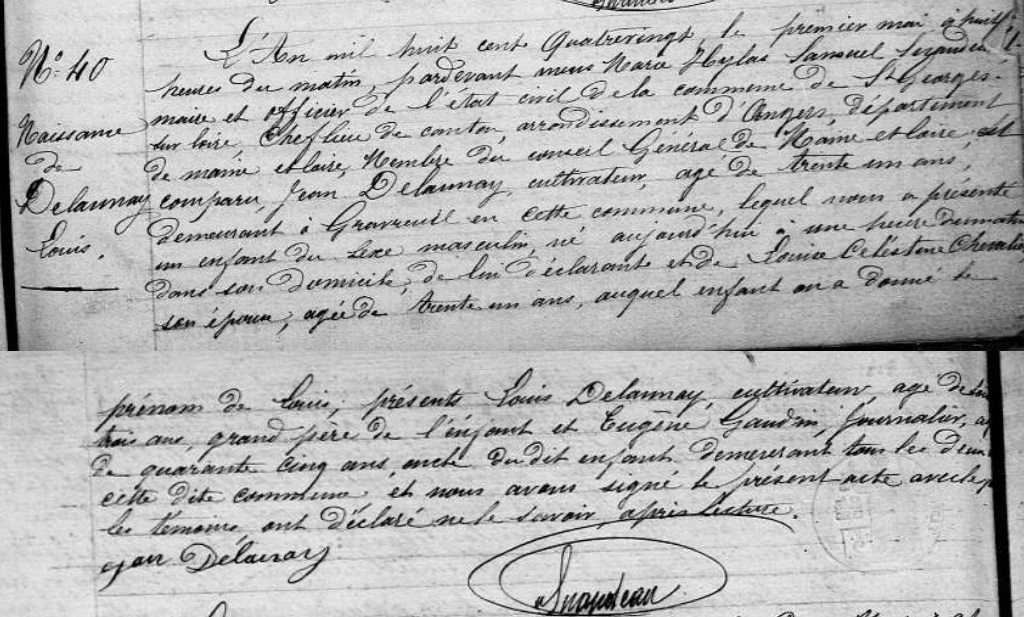 N° 40
Naissance
de
Delaunay
Louis.
L'An mil huit cent Quatrevingt, le premier mai à huit
heures du matin, pardevant nous Marie Hylas Samuel
maire et officier de l'état civil dela commune de St Georges-
sur loire, Cheflieu de canton, arrondissement d'Angers, département
de maine et loire, Membre du conseil Général de Maine et loire, est
comparu, Jean Delaunay, cultivateur, agé de trente un ans,
demeurant à Gravreuil en cette commune, lequel nous a présenté
un enfant du sexe masculin, né aujourd'hui à une heure dumatin
dans son domicile, de lui déclarant et de Louise Célestine Chevalier,
son épouse, agée de trente un ans, auquel enfant on a donné le
prénom de Louis, présents Louis Delaunay, cultivateur, agé de
trois ans, grand père de l'enfant et Eugène Gaudin, Journalier,
de quarante cinq ans, oncle dudit enfant, demeurant tous les deux
cette dite commune et nous avons signé le présent acte avec le
les témoins, ont déclaré ne le savoir, après lecture.
Jean Delaunay